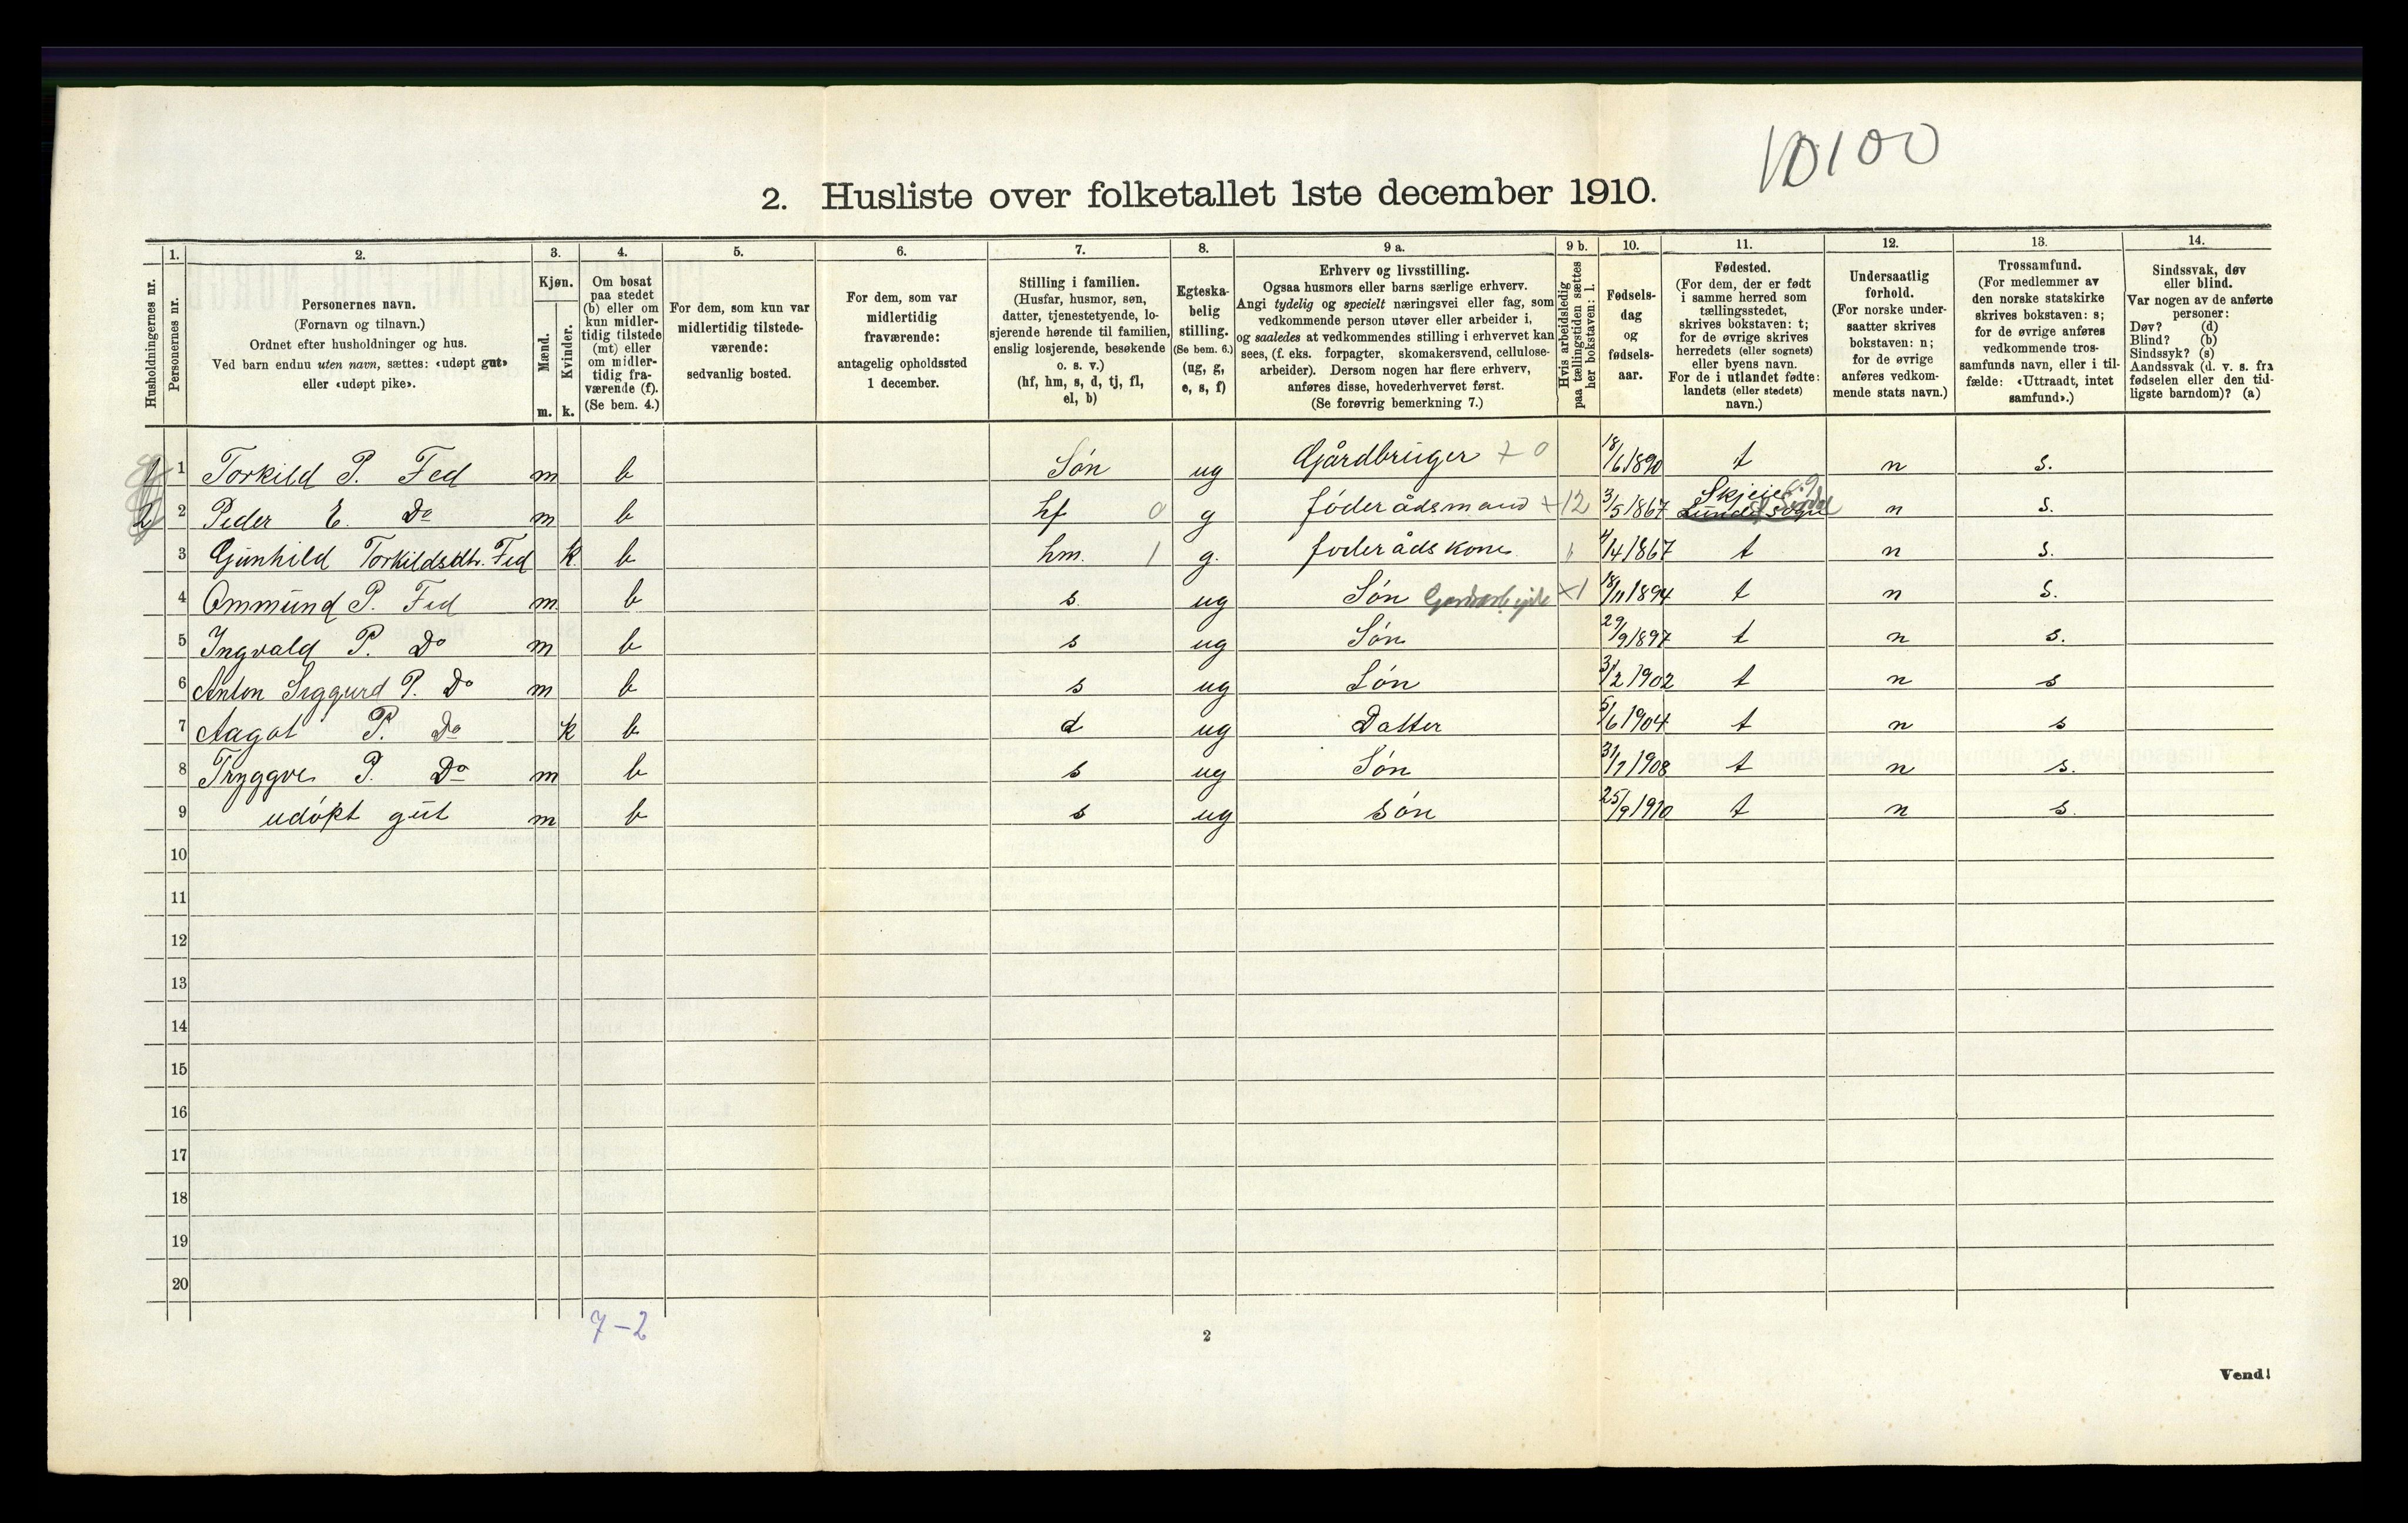 10100
2. Husliste over folketallet 1ste december 1910.
Husholdningernes nr.
1. Personernes nr.
2. Personernes navn. (Fornavn og tilnavn.) Ordnet efter husholdninger og hus. Ved barn endnu uten navn, sættes: «udøpt gut» eller «udøpt pike».
3. Kjøn. Mænd. Kvinder. m. k.
4. Om bosat paa stedet (b) eller om kun midlertidig tilstede (mt) eller om midlertidig fraværende (f). (Se bem. 4.)
5. For dem, som kun var midlertidig tilstedeværende: sedvanlig bosted.
6. For dem, som var midlertidig fraværende: antagelig opholdssted 1 december.
7. Stilling i familien. (Husfar, husmor, søn, datter, tjenestetyende, losjerende hørende til familien, enslig losjerende, besøkende o. s. v.) (hf, hm, s, d, tj, fl, el, b)
8. Egteskabelig stilling. (Se bem. 6.) (ug, g, e, s, f)
9 a. Erhverv og livsstilling. Ogsaa husmors eller barns særlige erhverv. Angi tydelig og specielt næringsvei eller fag, som vedkommende person utøver eller arbeider i, og saaledes at vedkommendes stilling i erhvervet kan sees, (f. eks. forpagter, skomakersvend, cellulosearbeider). Dersom nogen har flere erhverv, anføres disse, hovederhvervet først. (Se forøvrig bemerkning 7.)
9 b. Hvis arbeidsledig paa tællingstiden sættes her bokstaven: l.
10. Fødselsdag og fødselsaar.
11. Fødested. (For dem, der er født i samme herred som tællingsstedet, skrives bokstaven: t; for de øvrige skrives herredets (eller sognets) eller byens navn. For de i utlandet fødte: landets (eller stedets) navn.)
12. Undersaatlig forhold. (For norske undersaatter skrives bokstaven: n; for de øvrige anføres vedkommende stats navn.)
13. Trossamfund. (For medlemmer av den norske statskirke skrives bokstaven: s; for de øvrige anføres vedkommende trossamfunds navn, eller i tilfælde: «Uttraadt, intet samfund».)
14. Sindssvak, døv eller blind. Var nogen av de anførte personer: Døv? (d) Blind? (b) Sindssyk? (s) Aandssvak (d. v. s. fra fødselen eller den tidligste barndom)? (a)
1 1 Torkild P. Fed m b Søn ug Gårdbruger + 0 18/6 1890 t n s.
2 2 Peder E. Do m b hf 0 g føderådsmand + 12 3/5 1867 Skjeie Lunde sogn n s.
3 Gunhild Torkildsdtr. Fed k b hm. 1 g. føderådskone 4/4 1867 t n s.
4 Ommund P. Fed m b s. ug Søn Gardsarbeide X1 18/11 1894 t n s.
5 Ingvald P. Do m b s ug Søn 29/9 1897 t n s.
6 Anton Siggurd P. Do m b s ug Søn 2 1902 t n s
7 Aagot P. Do k b d ug Datter 5/6 1904 t n s
8 Tryggve P. Do m b s ug Søn 31/7 1908 t n s.
9 udøpt gut m b s ug søn 25/9 1910 t n s.
10
11
12
13
14
15
16
17
18
19
20
7-2
2
Vend!